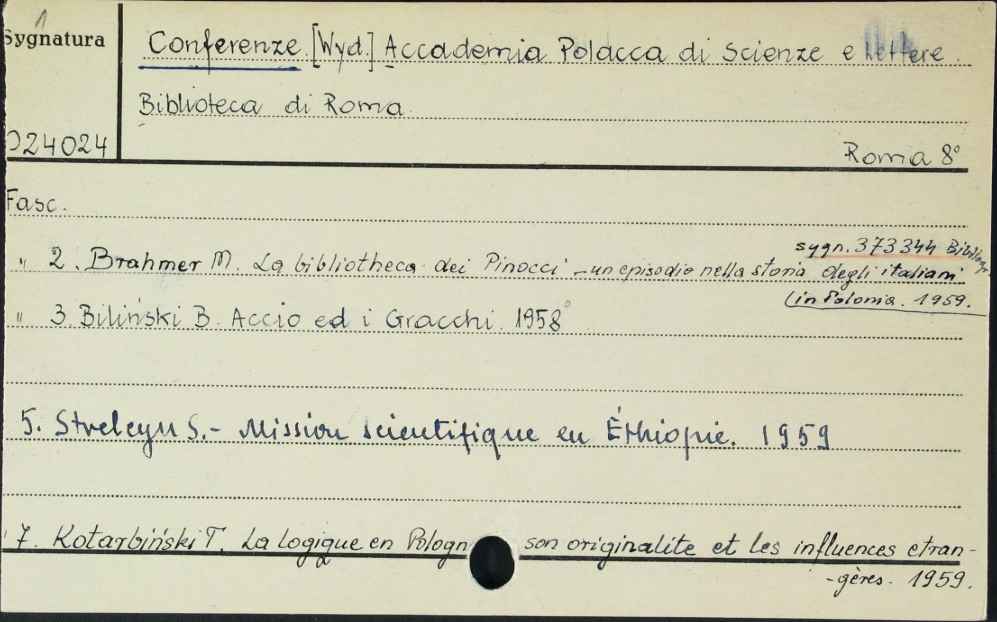 1
Sygnatura
Conferenze. [Wyd.] Accademia Polacca di Scienze e Lettere.
Biblioteca di Roma.
024024
Roma 8°
Fasc.
sygn. 373344
" 2. Brahmer M. La bibliotheca dei Pinocci - un episodio nella storia degli italiani
(in Polonia. 1959.
" 3. Biliński B. Accio ed i Gracchi. 1958
5. Strelcyn S.- Mission scientifique en Éthiopie. 1959
7. Kotarbiński T. La logique en Pologn son originalite et les influences etran-
-gères. 1959.